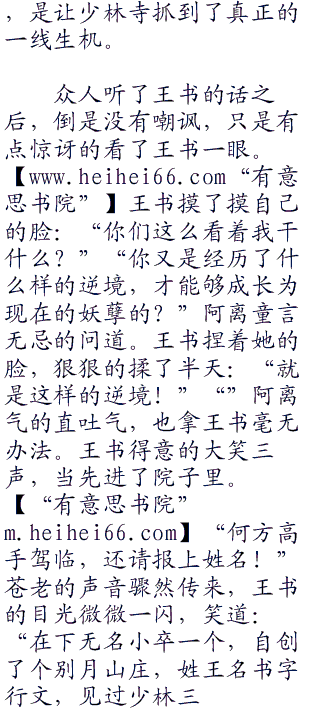 ，是让少林寺抓到了真正的
一线生机。
众人听了王书的话之
后，倒是没有嘲讽，只是有
点惊讶的看了王书一眼。
【www.heihei66.com“有意
思书院”】王书摸了摸自己
的脸：“你们这么看着我干
什么？”“你又是经历了什
么样的逆境，才能够成长为
现在的妖孽的？”阿离童言
无忌的问道。王书捏着她的
脸，狠狠的揉了半天：“就
是这样的逆境！”“”阿离
气的直吐气，也拿王书毫无
办法。王书得意的大笑三
声，当先进了院子里。
【“有意思书院”
m.heihei66.com】“何方高
手驾临，还请报上姓名！”
苍老的声音骤然传来，王书
的目光微微一闪，笑道：
“在下无名小卒一个，自创
了个别月山庄，姓王名书字
行文，见过少林三